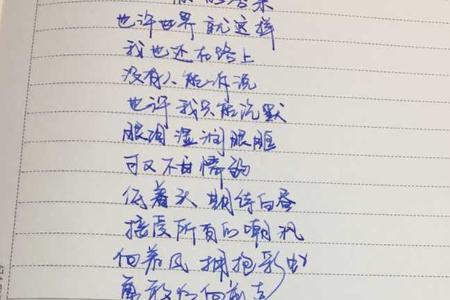 你的答案
也许世界就这样
我也还在路上
没有人能诉说
也许我只能沉默
眼泪湿润眼眶
可又不甘懦弱
低着头 期待白昼
接受所有的嘲讽
向着风 拥抱彩虹
勇敢的向前走